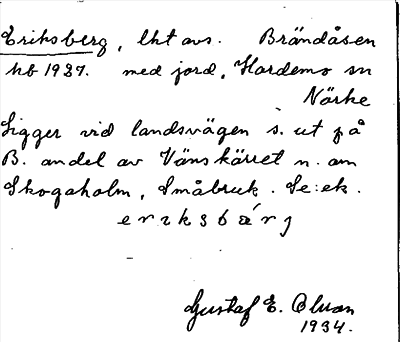 Eriksberg, lht avs. Brändåsen
hb 1937. med jord, Hardemo sn
Närke
Ligger vid landsvägen s. ut på
B. andel av Vänskärret n. om
Skogaholm, Småbruk. Se: ek.
eriksbärj
Gustaf E. Olson
1934.